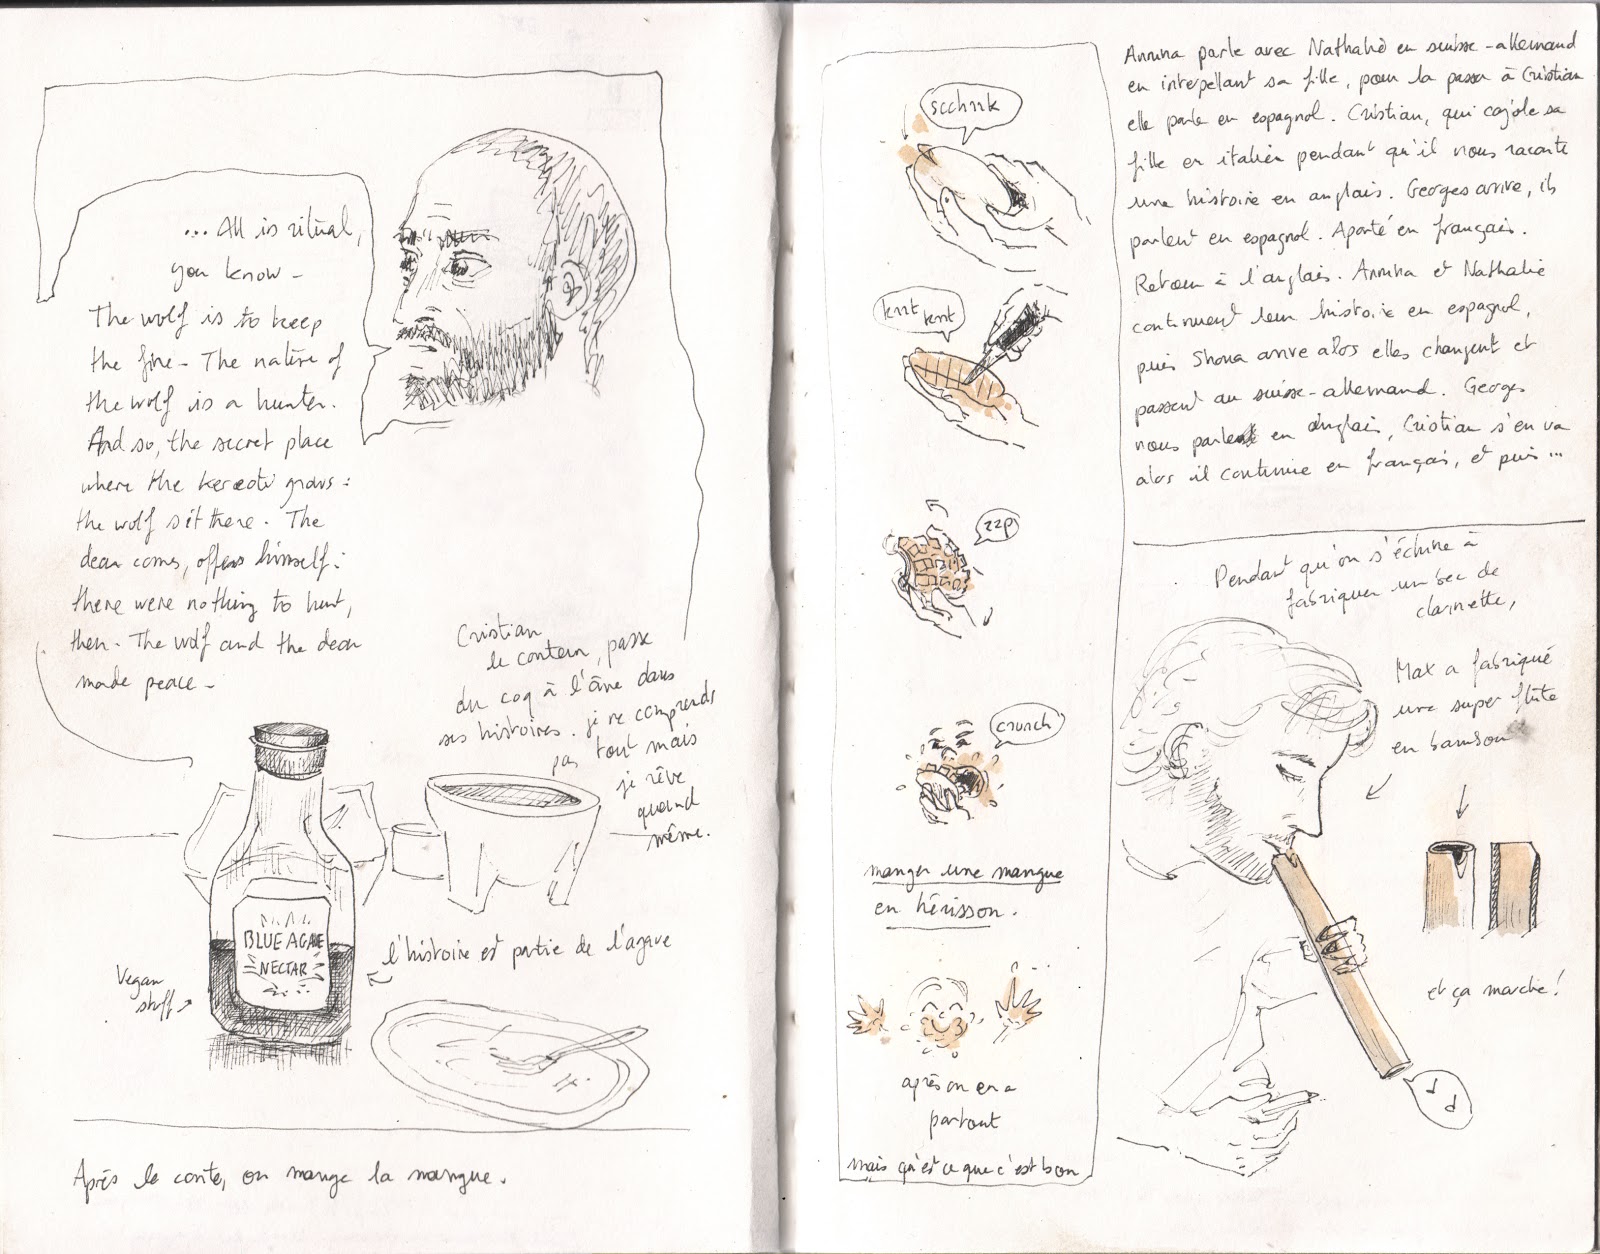 ... All is ritual,
you know –
The wolf is to keep
the fire – The nature of
the wolf is a hunter.
And so, the secret place
where the grows :
the wolf sit there. The
dear coms, offers himself :
there were nothing to hunt,
then – The wolf and the dear
made peace –
Cristian
le conteur, passe
du coq à l'âne dans
ses histoires. je ne comprends
pas tout mais
je rêve
quand
même.
BLUE AGAVE
NECTAR
Vegan
stuff
l'histoire est partie de l'agave
Après le conte, on mange la mangue.
scchrrk
krrt krrt
zzp
crunch
manger une mangue
en hérisson.
après on en a
partout
mais qu'est ce que c'est bon
Annina parle avec Nathalie en suisse-allemand
en interpelant sa fille, pour la passer à Cristian
elle parle en espagnol. Cristian, qui cajole sa
fille en italien pendant qu'il nous raconte
une histoire en anglais. Georges arrive, ils
parlent en espagnol. Aparté en français.
Retour à l'anglais. Annina et Nathalie
continuent leur histoire en espagnol,
puis Shona arrive alors elles changent et
passent au suisse-allemand. Georges
nous parle en anglais, Cristian s'en va
alors il continue en français, et puis ...
Pendant qu'on s'échine à
fabriquer un bec de
clarinette,
Max a fabriqué
une super flûte
en bambou
et ça marche !